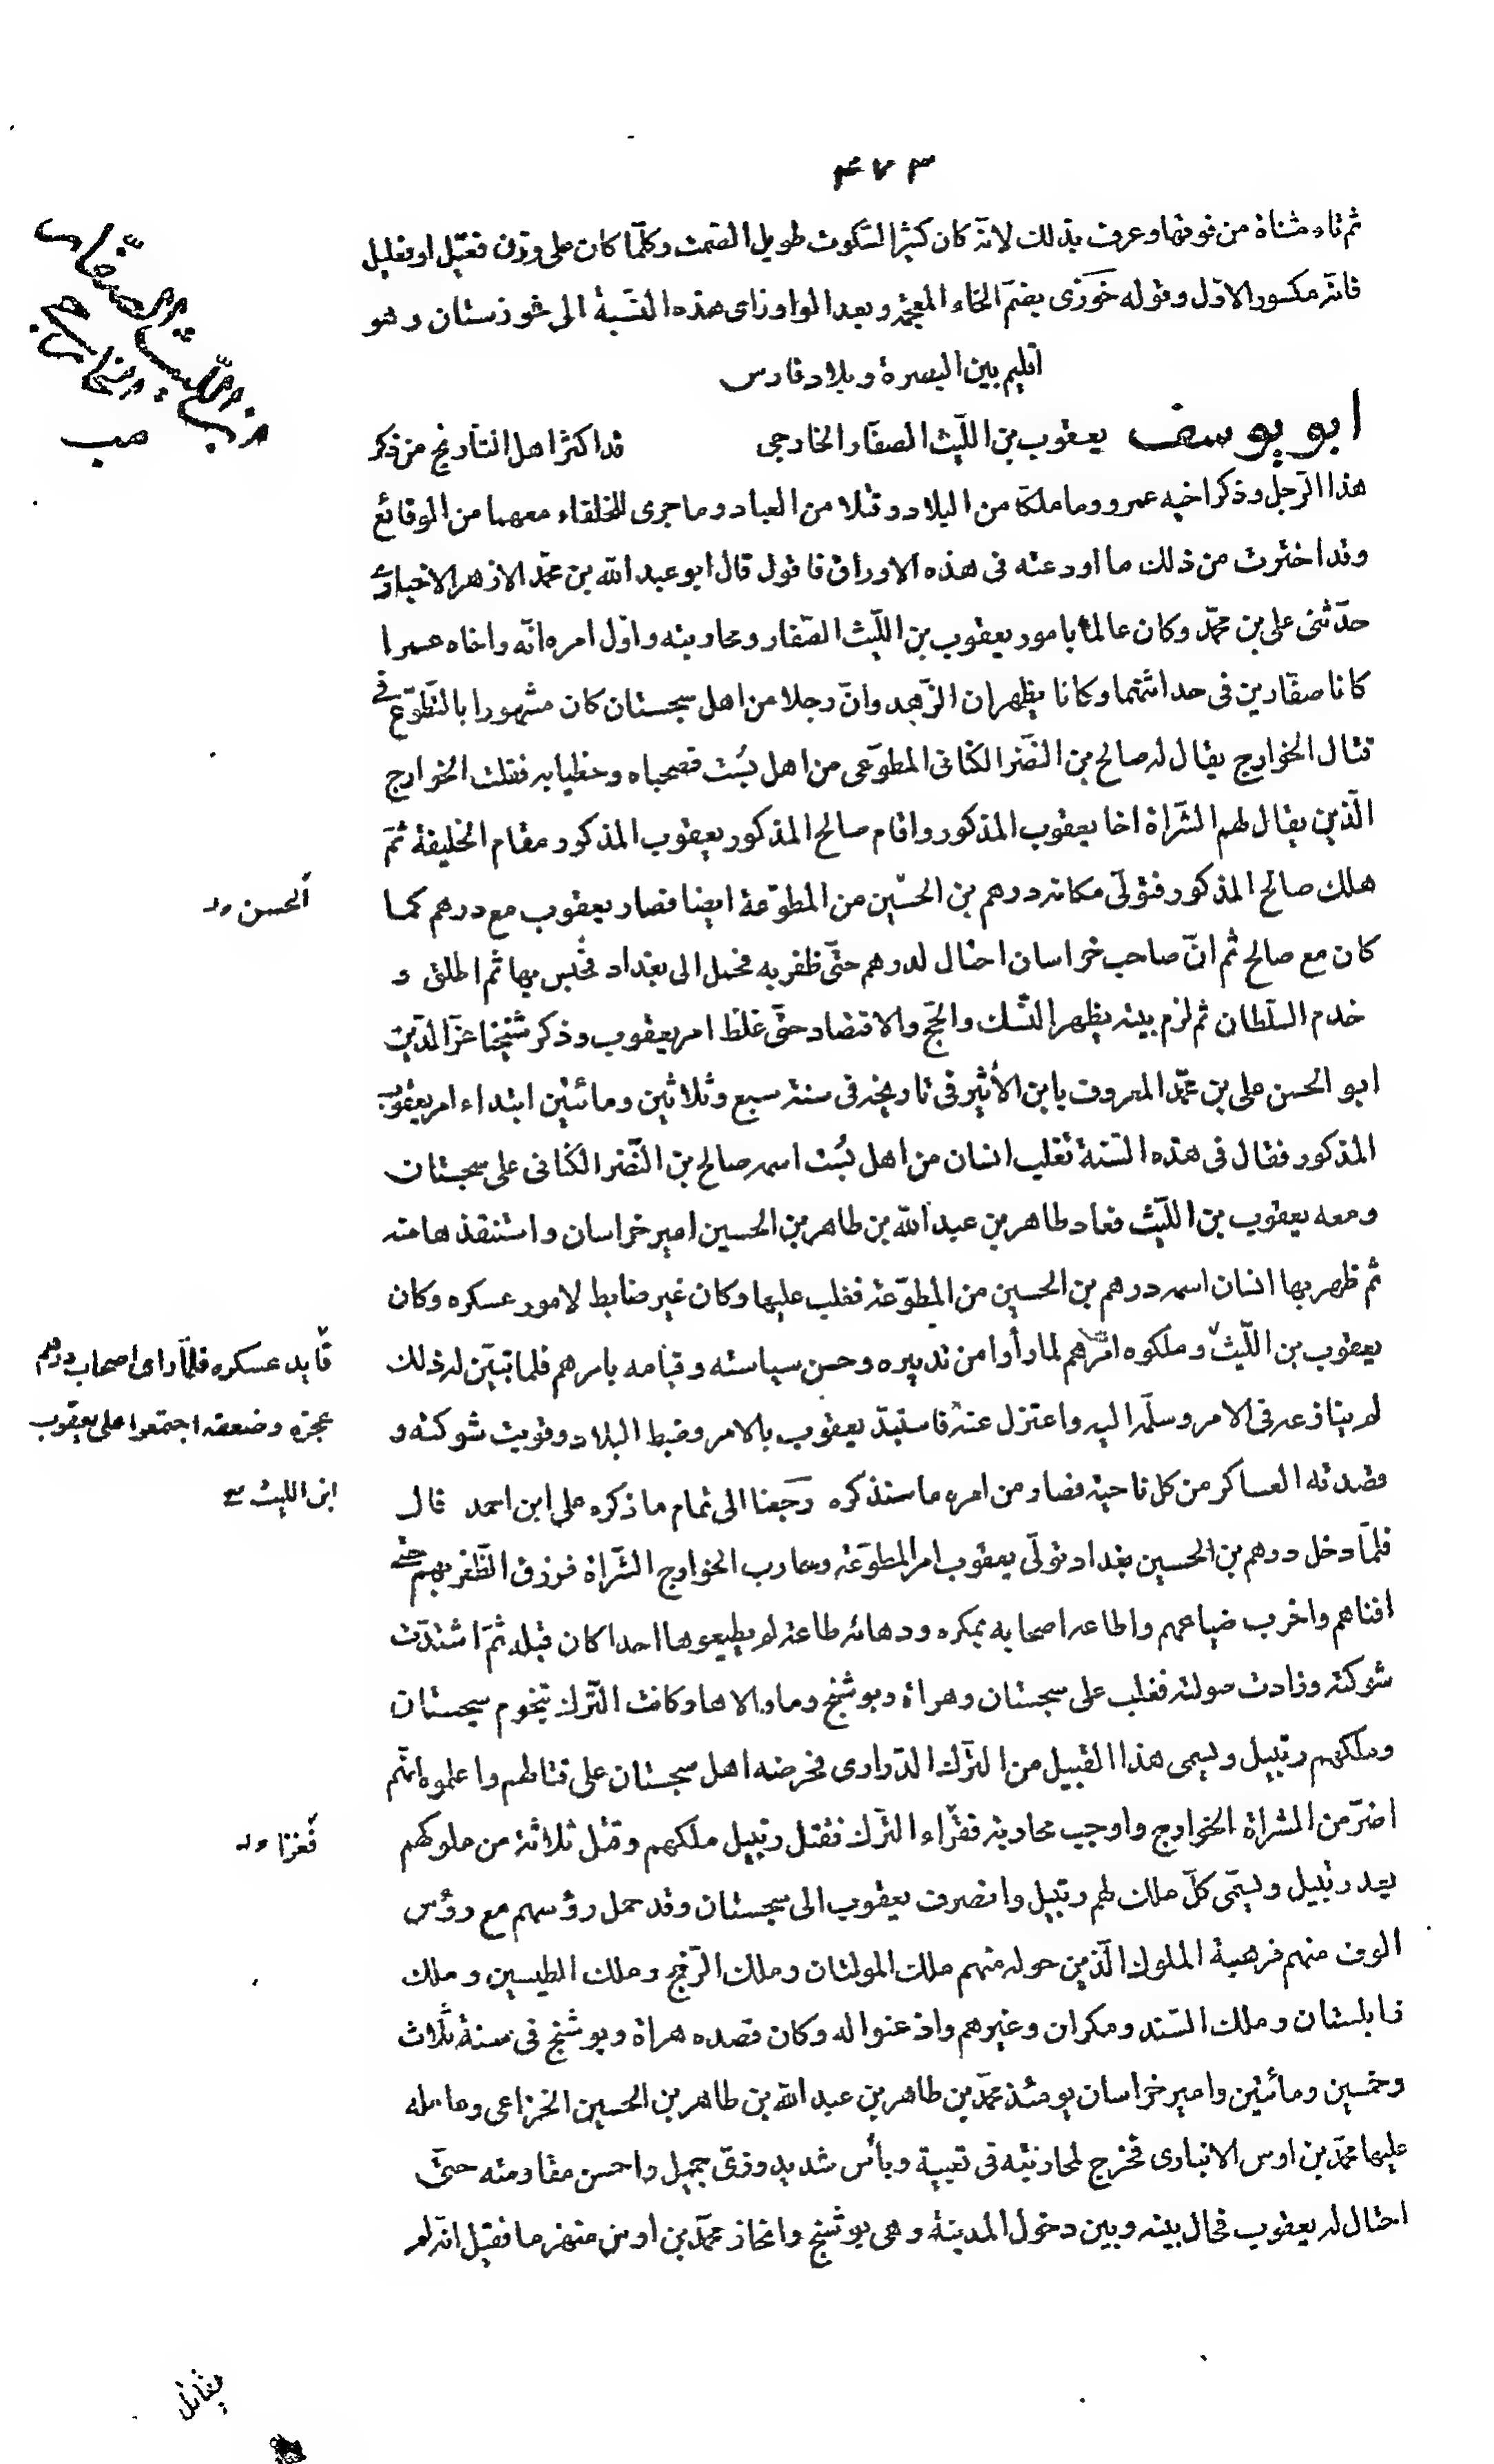 ۴۷۳
ثم تاء مثناة من فوقها وعرف بذلك لانه كان كثير السّكوت طويل الصّمت وكلّما كان على وزن فعّيل او فعليل
فانّه مكسور الاوّل وقوله خوزى بضمّ الخاء المعجمة وبعد الواو زاى هذه النّسبة الى خوزستان وهو
اقليم بين البصرة وبلاد فارس
ابو يوسف يعقوب بن اللّيث الصفّار الخارجى قد اكثر اهل التاريخ من ذكر
هذا الرّجل وذكر اخيه عمرو وما ملكا من البلاد وقتلا من العباد وما جرى للخلفاء معهما من الوقائع
وقد اخترت من ذلك ما اودعته فى هذه الاوراق فاقول قال ابو عبد الله بن محمّد الازهر الاخبارى
حدّثنى على بن محمّد وكان عالما بامور يعقوب بن اللّيث الصّفار ومحاربته واوّل امره انّه واخاه عمرا
كانا صفّارين فى حداثتهما وكانا يظهران الزّهد وانّ رجلا من اهل سجستان كان مشهورا بالتّطوّع فى
قتال الخوارج يقال له صالح بن النّضر الكنانى المطوّعى من اهل بُست فصحباه وحظيا به فقتلت الخوارج
الّذين يقال لهم الشّراة اخا يعقوب المذكور واقام صالح المذكور يعقوب المذكور مقام الخليفة ثمّ
هلك صالح المذكور فتولّى مكانه درهم بن الحسين من المطوّعة ايضا فصار يعقوب مع درهم كما
الحسن
كان مع صالح ثم انّ صاحب خراسان احتال لدرهم حتّى ظفر به فحمل الى بغداد فحُبس بها ثم اطلق و
خدم السّلطان ثم لزم بيته يظهر النّسك والحجّ والاقتصاد حتّى غلظ امر يعقوب وذكر شيخنا عزّ الدّين
ابو الحسن على بن محمّد المعروف بابن الأثير فى تاريخه فى سنة سبع وثلاثين ومائتين ابتداء امر يعقوب
المذكور فقال فى هذه السّنة تغلب انسان من اهل بُست اسمه صالح بن النّضر الكنانى على سجستان
ومعه يعقوب بن اللّيث فعاد طاهر بن عبد الله بن طاهر بن الحسين امير خراسان واستنقذها منه
ثم ظهر بها انسان اسمه درهم بن الحسين من المطوّعة فغلب عليها وكان غير ضابط لامور عسكره وكان
يعقوب بن اللّيث وملكوه امرهم لما رأوا من تدبيره وحسن سياسته وقيامه بامرهم فلما تبيّن له ذلك
قايد عسكره فلمّا راى اصحاب درهم
عجزه وضعفه اجتمعوا على يعقوب
ابن الليث
لم ينازعه فى الامر وسلّمه اليه واعتزل عنه فاستبدّ يعقوب بالامر وضبط البلاد وقويت شوكته و
قصدته العساكر من كل ناحية فصار من امره ما سنذكره رجعنا الى تمام ما ذكره على ابن احمد قال
فلمّا دخل درهم بن الحسين بغداد تولّى يعقوب امر المطوّعة وحارب الخوارج الشّراة فرزق الظّفر بهم حتى
افناهم واخرب ضياعهم واطاعه اصحابه بمكره ودهائه طاعة لم يطيعوها احدا كان قبله ثمّ اشتدّت
شوكته وزادت صولته فغلب على سجستان وهراة وبوشنج وما والاها وكانت التّرك بتخوم سجستان
وملكهم رتبيل ويسمى هذا القبيل من الترك الدّرارى فحرضه اهل سجستان على قتالهم واعلموه انّهم
اضرّ من الشراة الخوارج واوجب محاربة فغزاء التّرك فقتل رتبيل ملكهم وقتل ثلاثة من ملوكهم
فغزا
بعد رتبيل ويسمّى كلّ ملك لهم رتبيل وانصرف يعقوب الى سجستان وقد حمل رؤسهم مع رؤس
الوف منهم فرهبة الملوك الّذين حوله منهم ملك المولتان وملك الرّخج وملك الطبسين وملك
زابلستان وملك السّند ومكران وغيرهم واذعنوا له وكان قصده هراة وبوشنج فى سنة ثلاث
وخمسين ومائتين وامير خراسان يومئذ محمّد بن طاهر بن عبد الله بن طاهر بن الحسين الخزاعى وعامله
عليها محمّد بن اوس الانبارى فخرج لمحاربته فى تعبية وبأس شديد وزىّ جميل واحسن مقاومته حتى
احتال له يعقوب فحال بينه وبين دخول المدينة وهى بوشنج وانحاز محمّد بن اوس منهزما فقيل انه لم
يقاتل